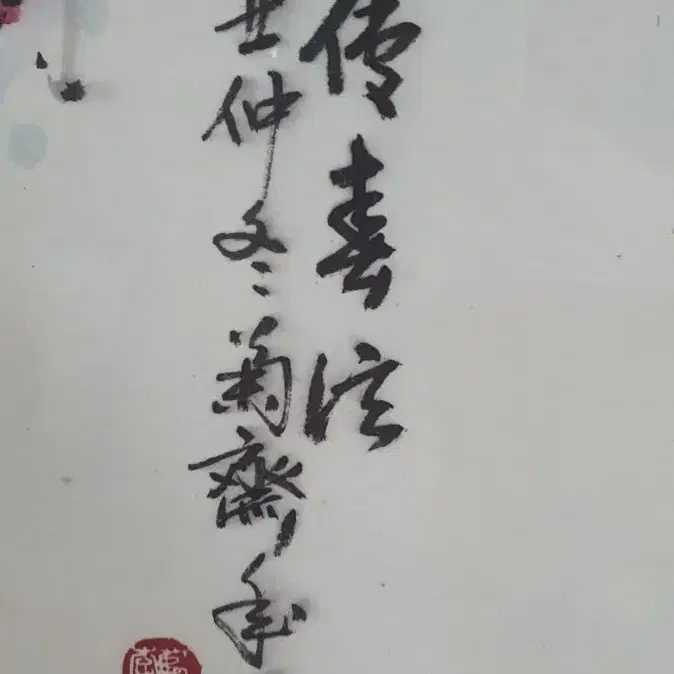 傳春信
仲冬菊齋